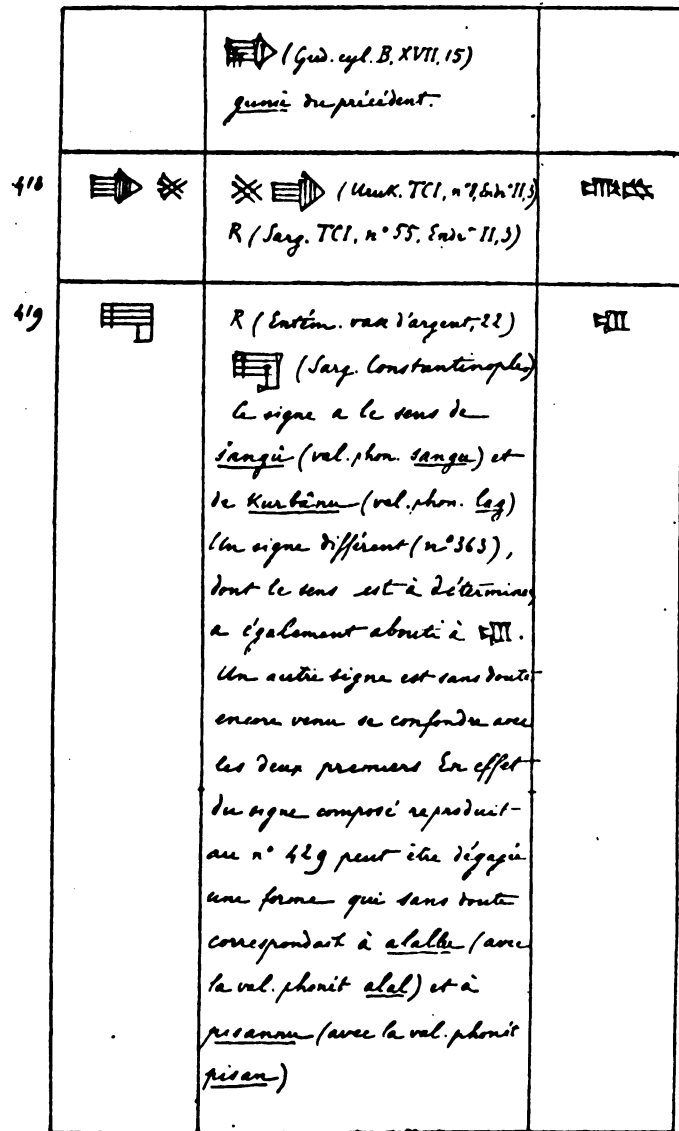 (Gud. cyl. B, XVII, 15)
gunié du précédent.
418
(Uruk. TCI, n° 1, Endr II, 3)
R (Sarg. TCI, n° 55, Endr II, 3)
419
R (Entém. vase d'argent, 22)
(Sarg. Constantinople)
Ce signe a le sens de
šangú (val. phon. sangu) et
de Kurbânu (val. phon. lag)
Un signe différent (n° 363),
dont le sens est à déterminer,
a également abouti à .
Un autre signe est sans doute
encore venu se confondre avec
les deux premiers En effet
du signe composé reproduit
au n° 429 peut être dégagée
une forme qui sans doute
correspondait à alallu (avec
la val. phonét alal) et à
pisannu (avec la val. phonét
pisan)